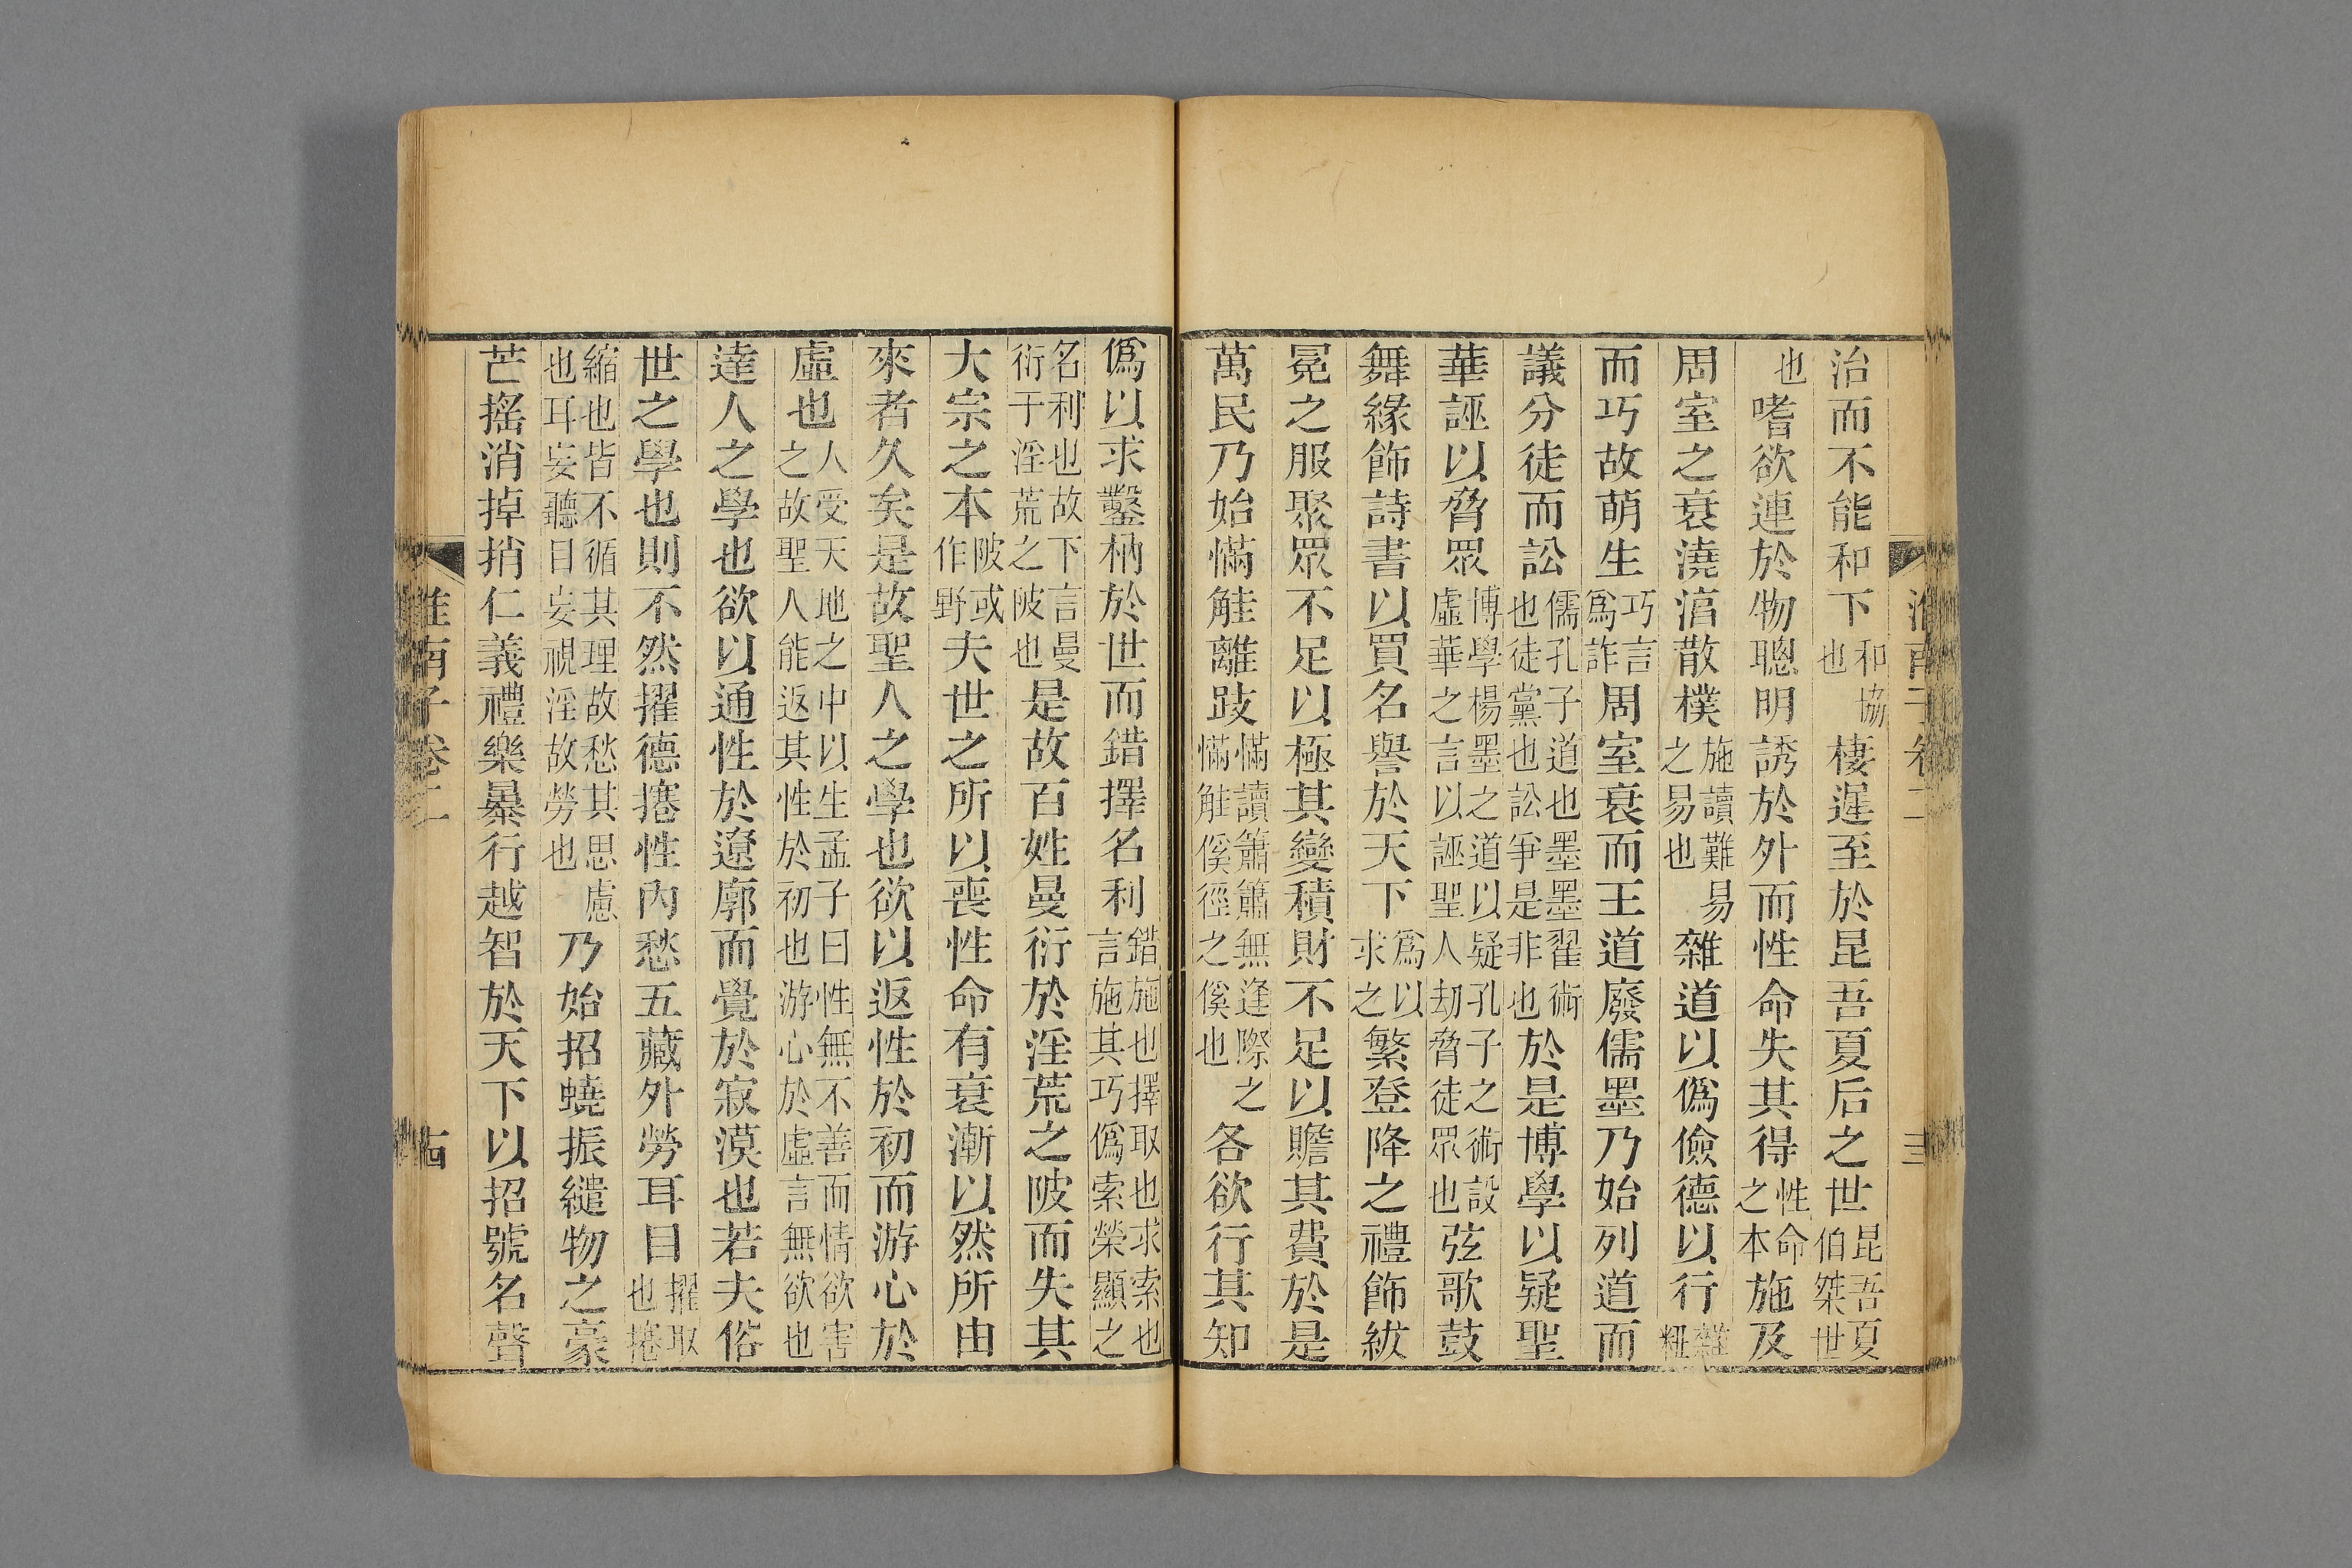 淮南子卷二
三
治而不能和下和協也棲遲至於昆吾夏后之世昆吾夏伯桀世
也嗜欲連於物聰明誘於外而性命失其得性命之本施及
周室之衰澆湻散樸施讀難易之易也雜道以僞儉德以行雜糅
而巧故萌生巧言爲詐周室衰而王道廢儒墨乃始列道而
議分徒而訟儒孔子道也墨墨翟術也徒黨也訟爭是非也於是博學以疑聖
華誣以脅眾博學楊墨之道以疑孔子之術設虛華之言以誣聖人劫脅徒眾也弦歌鼓
舞緣飾詩書以買名譽於天下爲以求之繁登降之禮飾紱
冕之服聚眾不足以極其變積財不足以贍其費於是
萬民乃始慲觟離跂慲讀簫簫無逢際之慲觟徯徑之徯也各欲行其知
僞以求鑿枘於世而錯擇名利錯施也擇取也求索也言施其巧僞索榮顯之
名利也故下言曼衍于淫荒之陂也是故百姓曼衍於淫荒之陂而失其
大宗之本陂或作野夫世之所以喪性命有衰漸以然所由
來者久矣是故聖人之學也欲以返性於初而游心於
虛也人受天地之中以生孟子曰性無不善而情欲害之故聖人能返其性於初也游心於虛言無欲也
達人之學也欲以通性於遼廓而覺於寂漠也若夫俗
世之學也則不然擢德攓性內愁五藏外勞耳目擢取也攓
縮也皆不循其理故愁其思慮也耳妄聽目妄視淫故勞也乃始招蟯振繾物之豪
芒搖消掉捎仁義禮樂暴行越智於天下以招號名聲
淮南子卷二